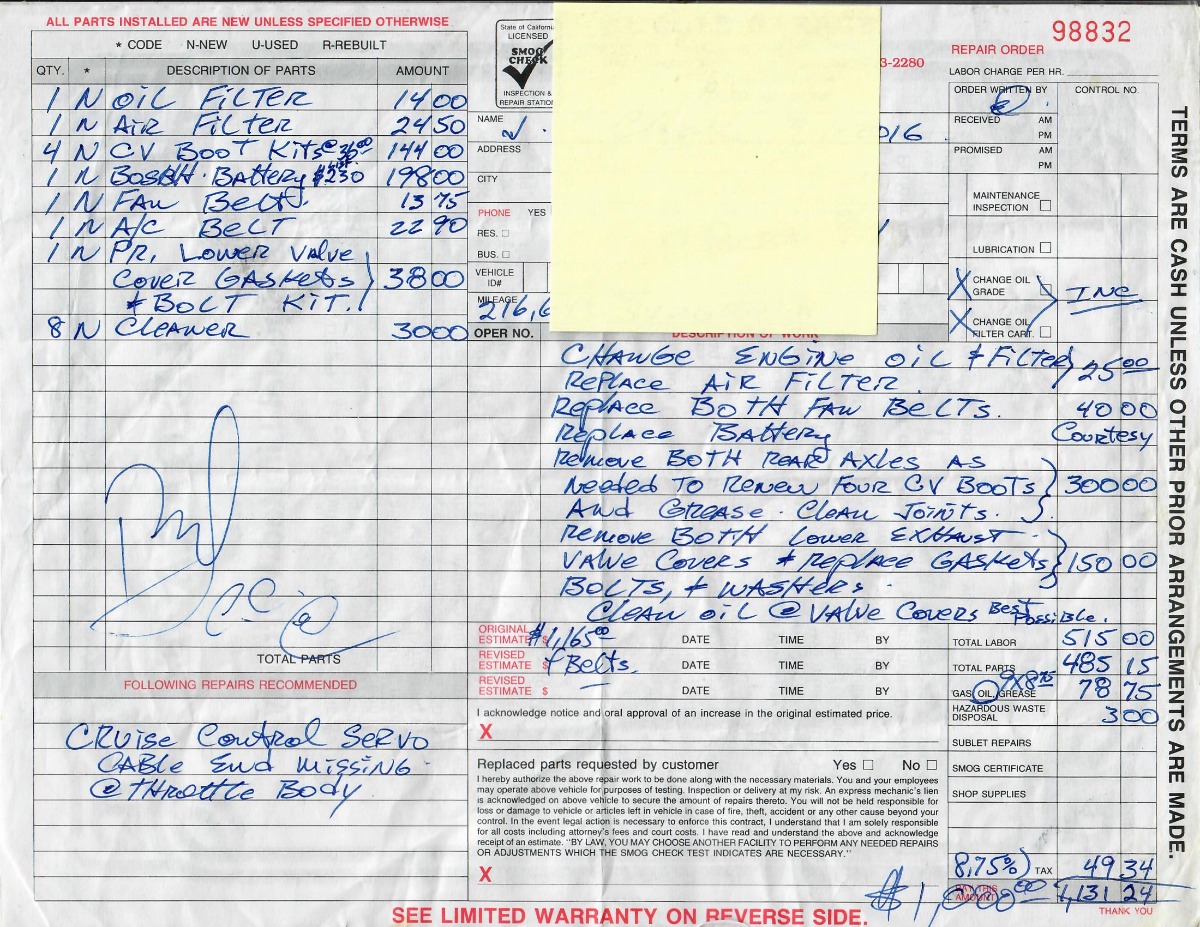 ALL PARTS INSTALLED ARE NEW UNLESS SPECIFIED OTHERWISE
* CODE N-NEW U-USED R-REBUILT
QTY. * DESCRIPTION OF PARTS AMOUNT
1 N OIL FILTER 14 00
1 N AIR FILTER 24 50
4 N CV BOOT KITS @ 36 00 144 00
1 N BOSCH BATTERY LIST $230 198 00
1 N FAN BELT 13 75
1 N A/C BELT 22 90
1 N PR. LOWER VALVE
COVER GASKETS 38 00
& BOLT KIT.
8 N CLEANER 30 00
TOTAL PARTS
FOLLOWING REPAIRS RECOMMENDED
CRUISE CONTROL SERVO
CABLE END MISSING
@ THROTTLE BODY
State of California
LICENSED
SMOG
CHECK
INSPECTION &
REPAIR STATION
3-2280
98832
REPAIR ORDER
LABOR CHARGE PER HR.
NAME
ADDRESS
CITY
PHONE YES
RES.
BUS.
VEHICLE
ID#
MILEAGE
216,6
016
ORDER WRITTEN BY CONTROL NO.
RECEIVED AM
PM
PROMISED AM
PM
MAINTENANCE
INSPECTION
LUBRICATION
X CHANGE OIL
GRADE
INC
X CHANGE OIL
FILTER CART.
OPER NO. DESCRIPTION OF WORK
CHANGE ENGINE OIL & FILTER
REPLACE AIR FILTER 25 00
REPLACE BOTH FAN BELTS. 40 00
REPLACE BATTERY COURTESY
REMOVE BOTH REAR AXLES AS
NEEDED TO RENEW FOUR CV BOOTS 300 00
AND GREASE. CLEAN JOINTS.
REMOVE BOTH LOWER EXHAUST
VALVE COVERS & REPLACE GASKETS 150 00
BOLTS, & WASHERS.
CLEAN OIL @ VALVE COVERS BEST POSSIBLE.
ORIGINAL
ESTIMATE $ $1,165 00 DATE TIME BY
REVISED
ESTIMATE $ + BELTS. DATE TIME BY
REVISED
ESTIMATE $ DATE TIME BY
I acknowledge notice and oral approval of an increase in the original estimated price.
X
Replaced parts requested by customer Yes No
I hereby authorize the above repair work to be done along with the necessary materials. You and your employees
may operate above vehicle for purposes of testing. Inspection or delivery at my risk. An express mechanic's lien
is acknowledged on above vehicle to secure the amount of repairs thereto. You will not be held responsible for
loss or damage to vehicle or articles left in vehicle in case of fire, theft, accident or any other cause beyond your
control. In the event legal action is necessary to enforce this contract, I understand that I am solely responsible
for all costs including attorney's fees and court costs. I have read and understand the above and acknowledge
receipt of an estimate. "BY LAW, YOU MAY CHOOSE ANOTHER FACILITY TO PERFORM ANY NEEDED REPAIRS
OR ADJUSTMENTS WHICH THE SMOG CHECK TEST INDICATES ARE NECESSARY."
X
TOTAL LABOR 515 00
TOTAL PARTS 485 15
9x8.75
GAS, OIL, GREASE 78 75
HAZARDOUS WASTE
DISPOSAL 3 00
SUBLET REPAIRS
SMOG CERTIFICATE
SHOP SUPPLIES
8.75%) TAX 49 34
PAY THIS
AMOUNT 1,131 24
$1,000 00
THANK YOU
SEE LIMITED WARRANTY ON REVERSE SIDE.
TERMS ARE CASH UNLESS OTHER PRIOR ARRANGEMENTS ARE MADE.